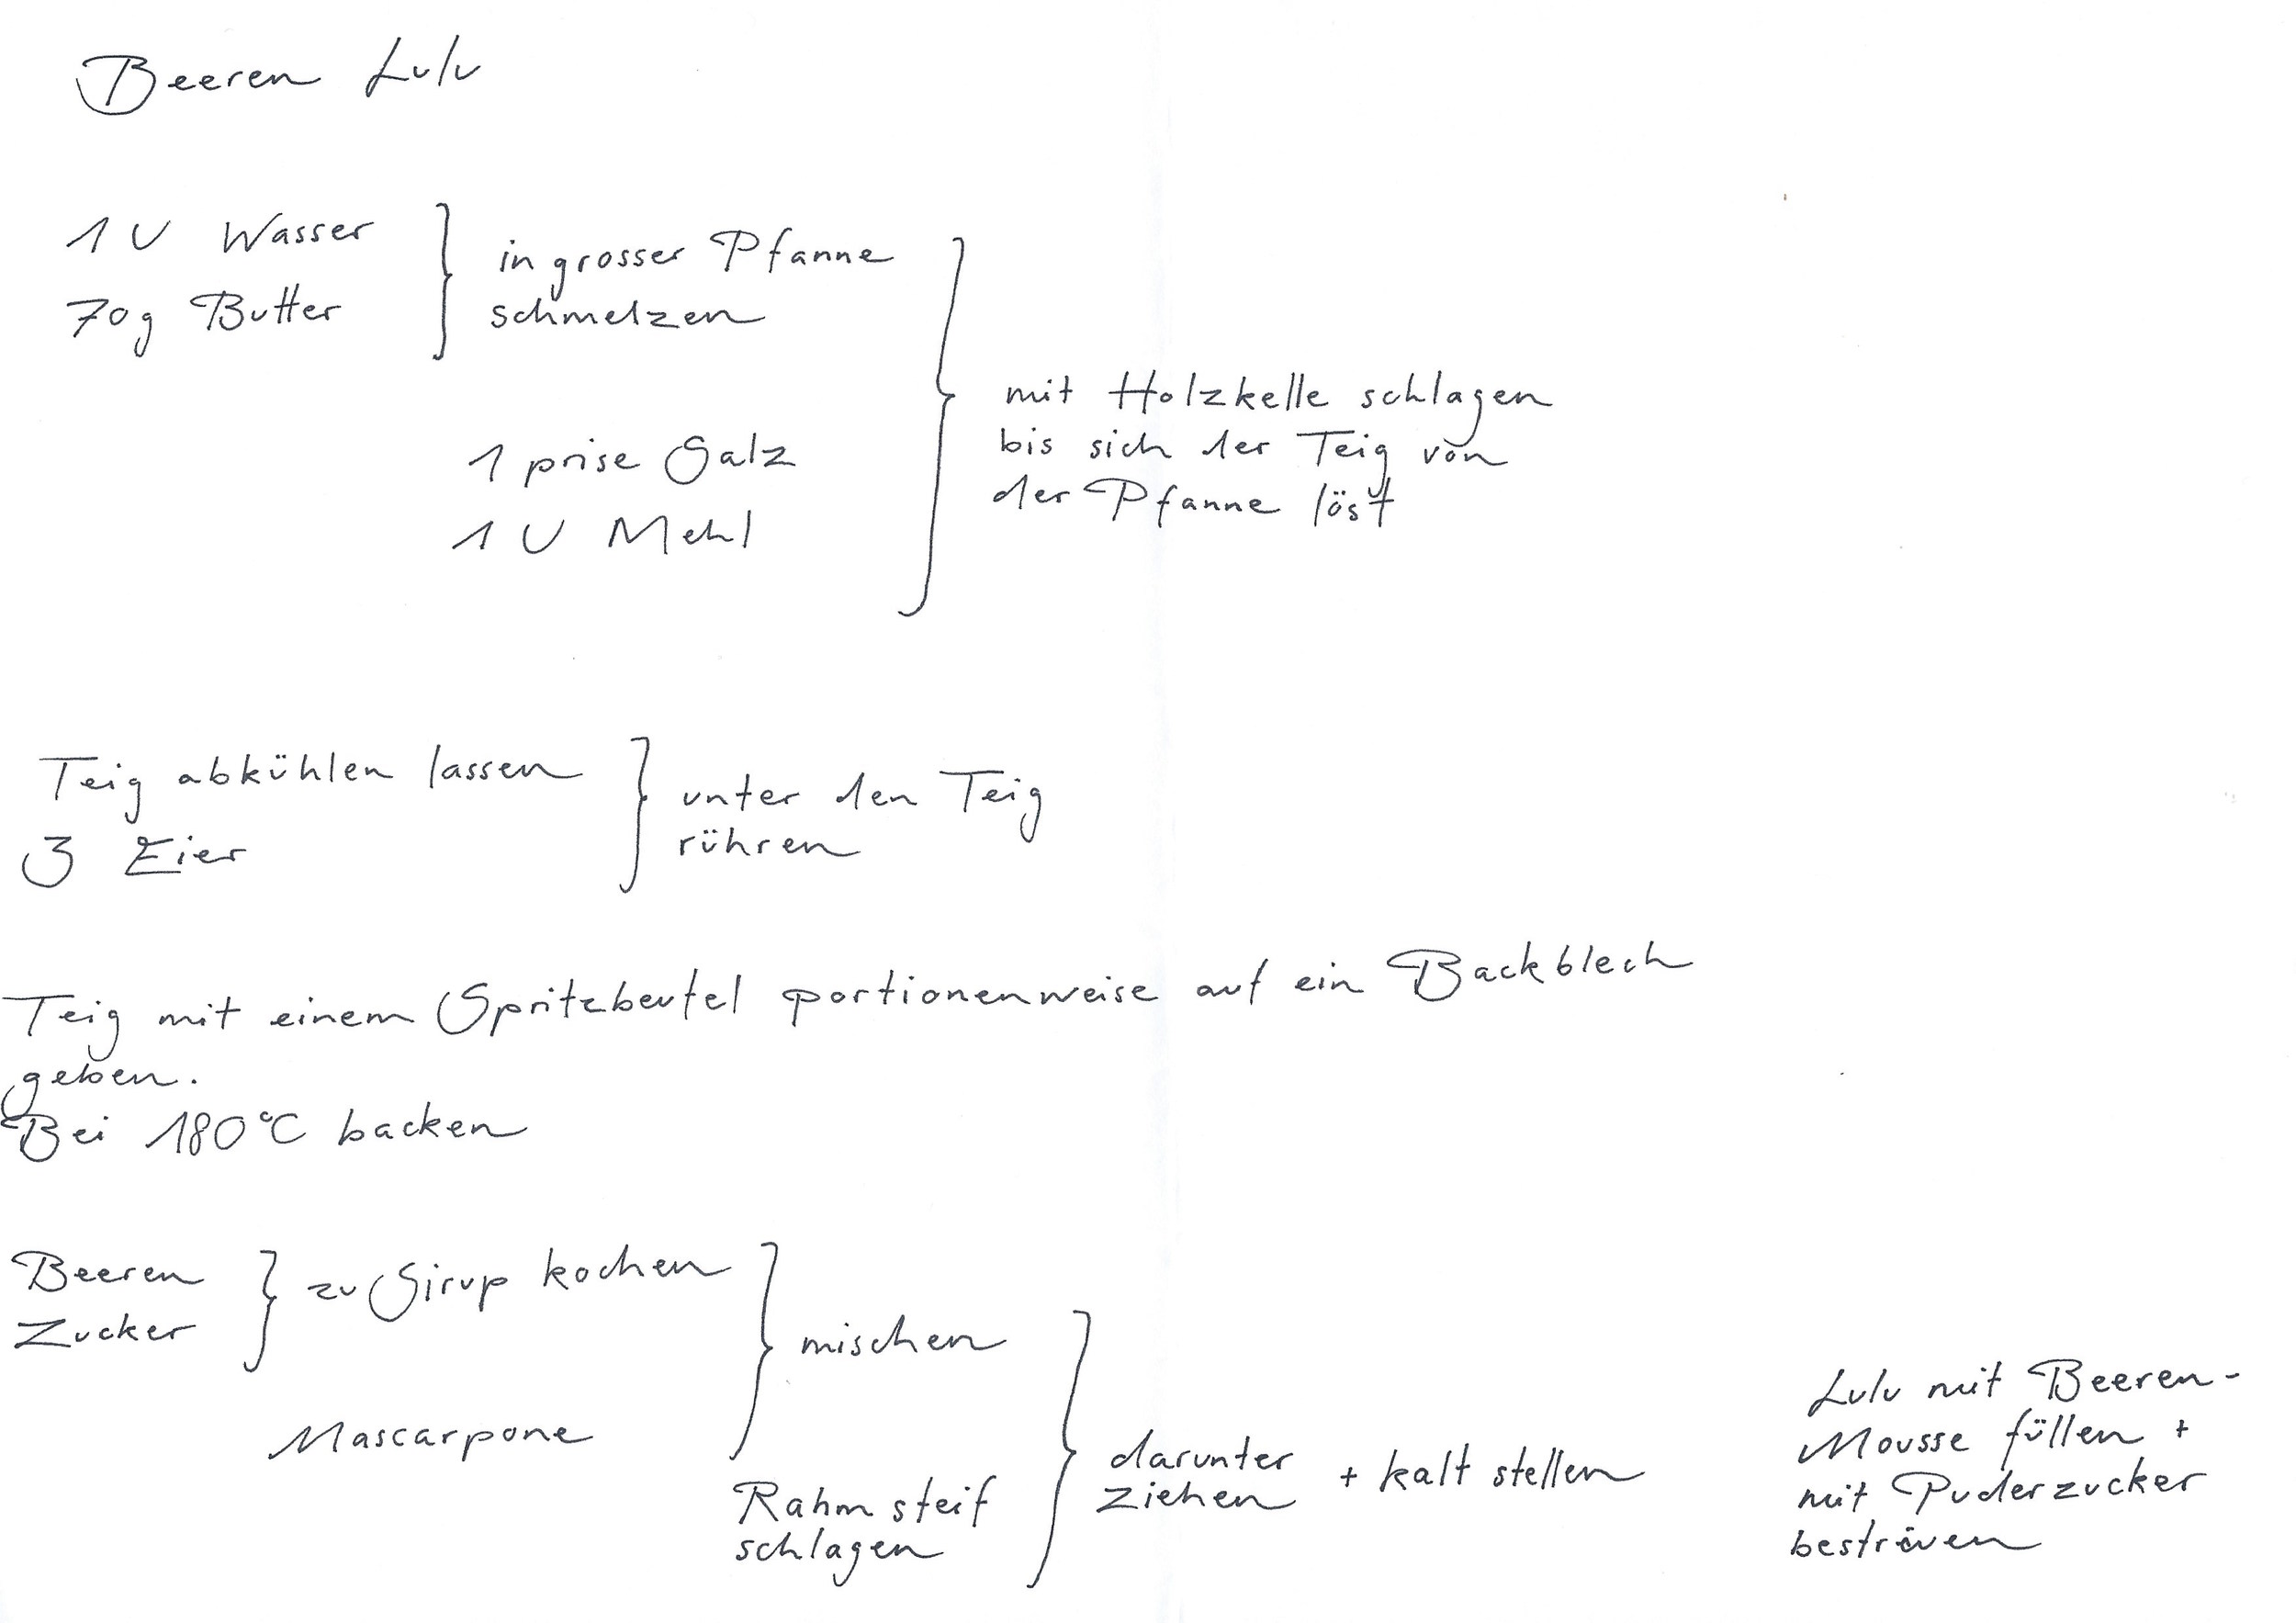 Beeren Lulu
1 U Wasser
70g Butter
in grosser Pfanne
schmelzen
1 prise Salz
1 U Mehl
mit Holzkelle schlagen
bis sich der Teig von
der Pfanne löst
Teig abkühlen lassen
3 Eier
unter den Teig
rühren
Teig mit einem Spritzbeutel portionenweise auf ein Backblech
geben.
Bei 180°C backen
Beeren
Zucker
zu Sirup kochen
Mascarpone
mischen
Rahm steif
schlagen
darunter
ziehen
+ kalt stellen
Lulu mit Beeren-
Mousse füllen +
mit Puderzucker
besträuen